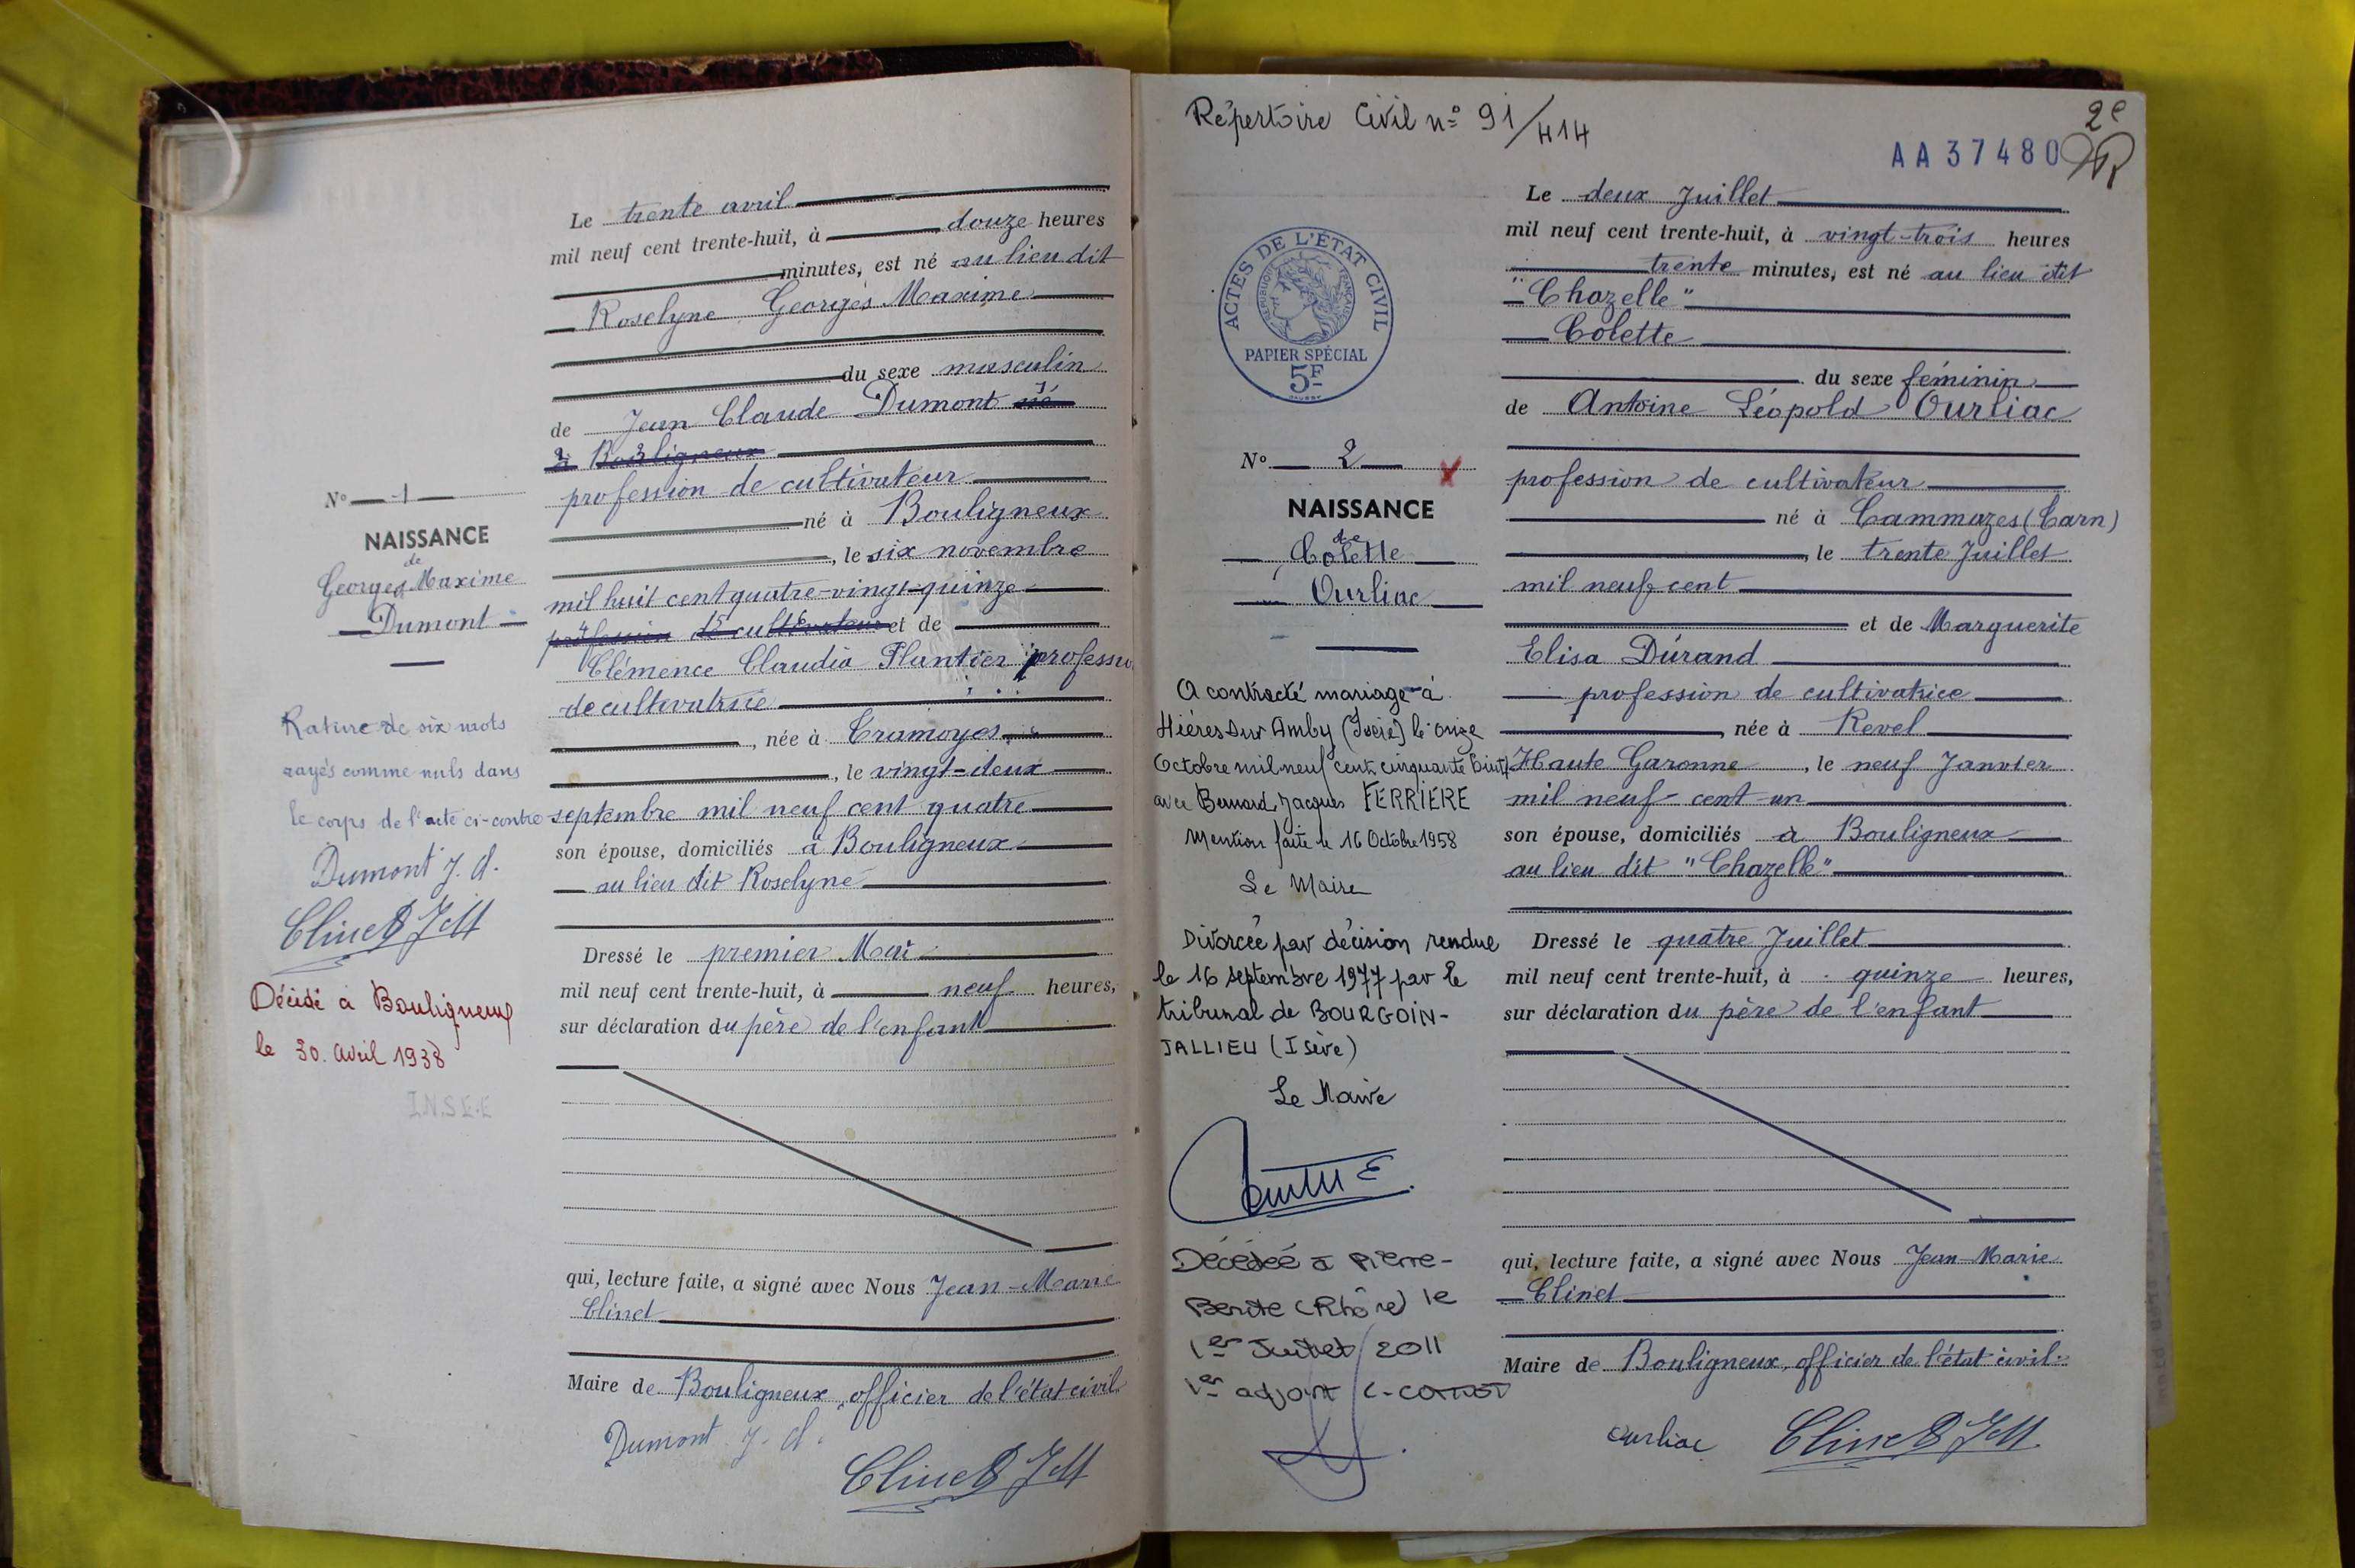 N° 1
NAISSANCE
de
Georges Maxime
Dumont
Rature de six mots
rayés comme nuls dans
le corps de l'acte ci-contre
Dumont J. Cl.
Clinet J M
Décédé à Bouligneux
le 30 avril 1938
I.N.S.E.E
Le trente avril
mil neuf cent trente-huit, à douze heures
minutes, est né au lieu dit
Roselyne Georges Maxime
du sexe masculin
de Jean Claude Dumont né
à Bouligneux
profession de cultivateur
né à Bouligneux
, le six novembre
mil huit cent quatre-vingt-quinze
profession de cultivateur et de
Clémence Claudia Plantier profession
de cultivatrice
, née à Tramoyes
, le vingt-deux
septembre mil neuf cent quatre
son épouse, domiciliés à Bouligneux
au lieu dit Roselyne
Dressé le premier Mai
mil neuf cent trente-huit, à neuf heures,
sur déclaration du père de l'enfant
qui, lecture faite, a signé avec Nous Jean-Marie
Clinet
Maire de Bouligneux, officier de l'état civil
Dumont J. Cl.
Clinet J M
Répertoire Civil n° 91/414
2e
AA37480
ACTES DE L'ÉTAT CIVIL
RÉPUBLIQUE FRANÇAISE
PAPIER SPÉCIAL
5F
N° 2
NAISSANCE
de
Colette
Ourliac
A contracté mariage à
Hières sur Amby (Isère) le onze
Octobre mil neuf cent cinquante huit
avec Bernard Jacques FERRIERE
Mention faite le 16 Octobre 1958
Le Maire
Divorcée par décision rendue
le 16 septembre 1977 par le
tribunal de BOURGOIN-
JALLIEU (Isère)
Le Maire
Décédée à Pierre-
Benite (Rhône) le
1er Juillet 2011
1er adjoint
Le deux Juillet
mil neuf cent trente-huit, à vingt-trois heures
trente minutes, est né au lieu dit
"Chazelle"
Colette
du sexe féminin
de Antoine Léopold Ourliac
profession de cultivateur
né à Cammazes (Tarn)
, le trente Juillet
mil neuf cent
et de Marguerite
Elisa Durand
profession de cultivatrice
, née à Revel
Haute Garonne, le neuf Janvier
mil neuf cent un
son épouse, domiciliés à Bouligneux
au lieu dit "Chazelle"
Dressé le quatre Juillet
mil neuf cent trente-huit, à quinze heures,
sur déclaration du père de l'enfant
qui, lecture faite, a signé avec Nous Jean-Marie
Clinet
Maire de Bouligneux, officier de l'état civil
Ourliac
Clinet J M